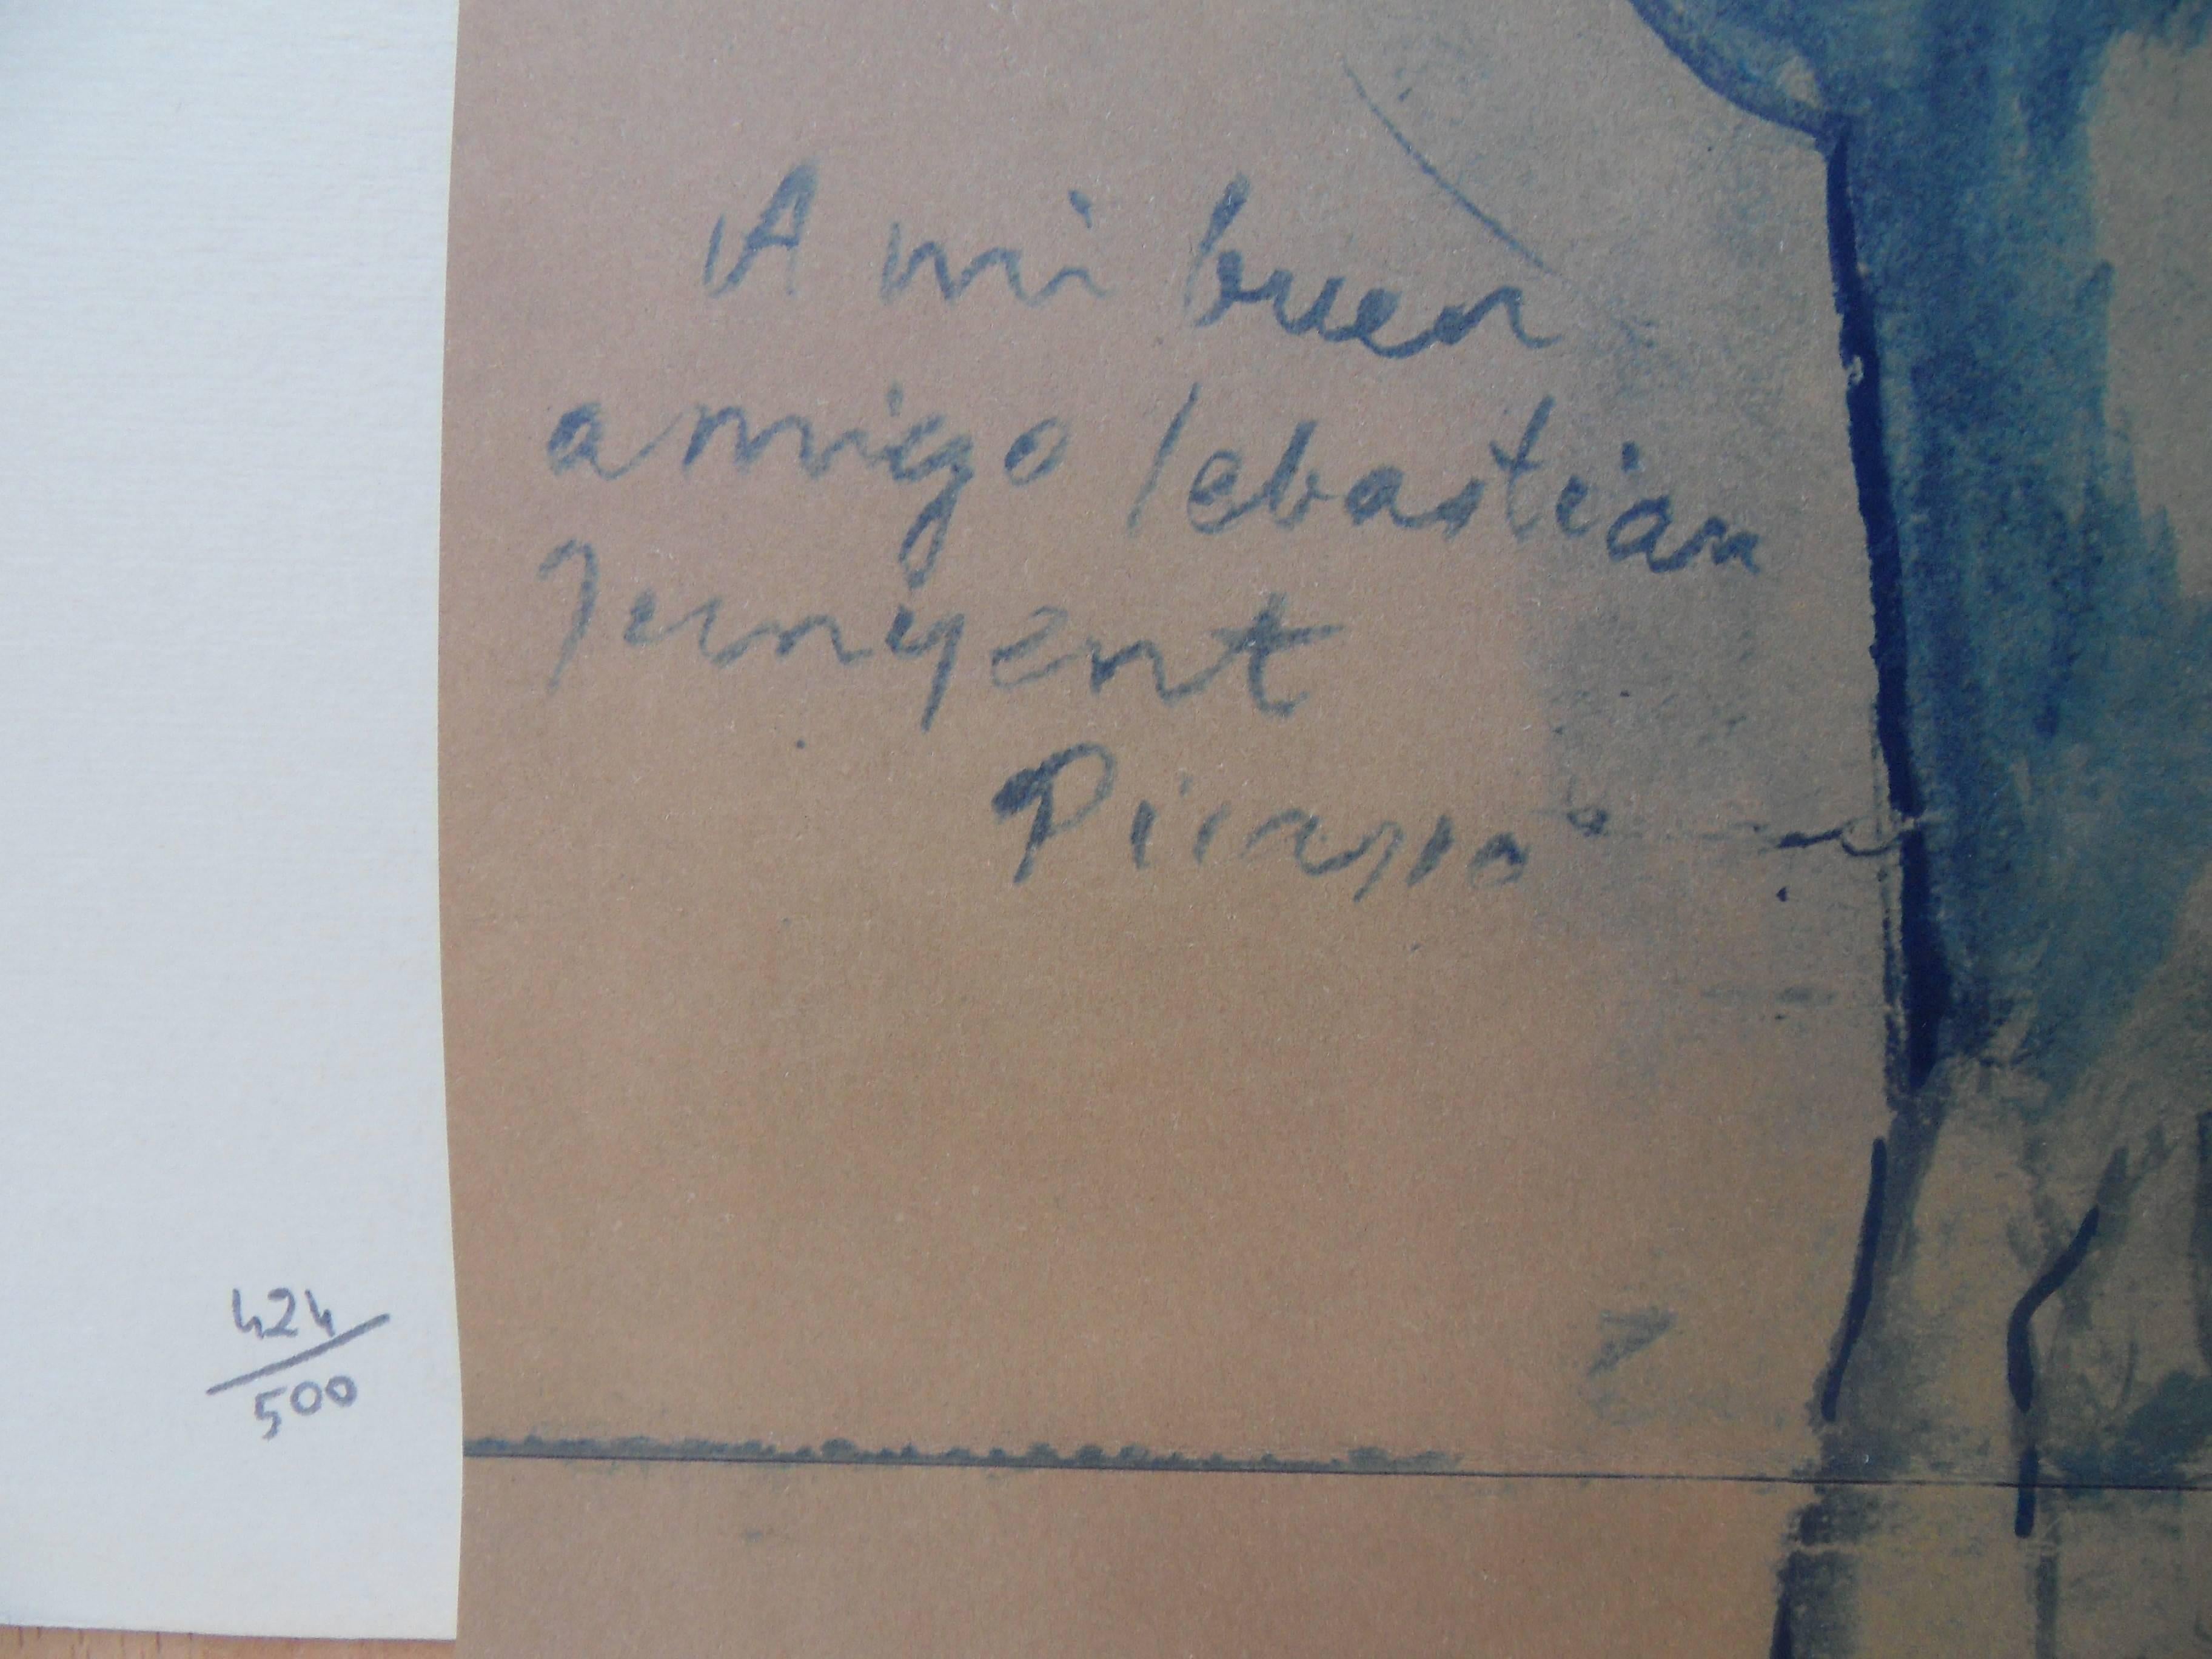 A mi buen
amigo Sebastian
Junyent
Picasso
424/500